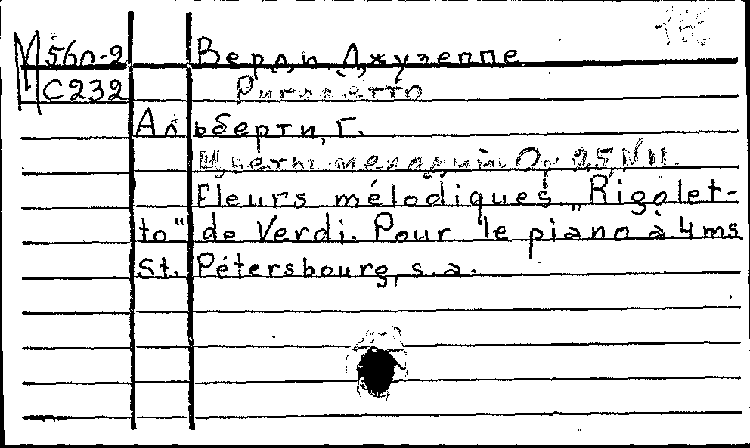 М 560-2 Верди, Джузеппе
С232 Риголетто
Альберти, Г.
Цветы мелодий Op. 25, N 11.
Fleurs mélodiques „Rigolet-
to" de Verdi. Pour le piano à 4 ms
St. Pétersbourg, s.a.